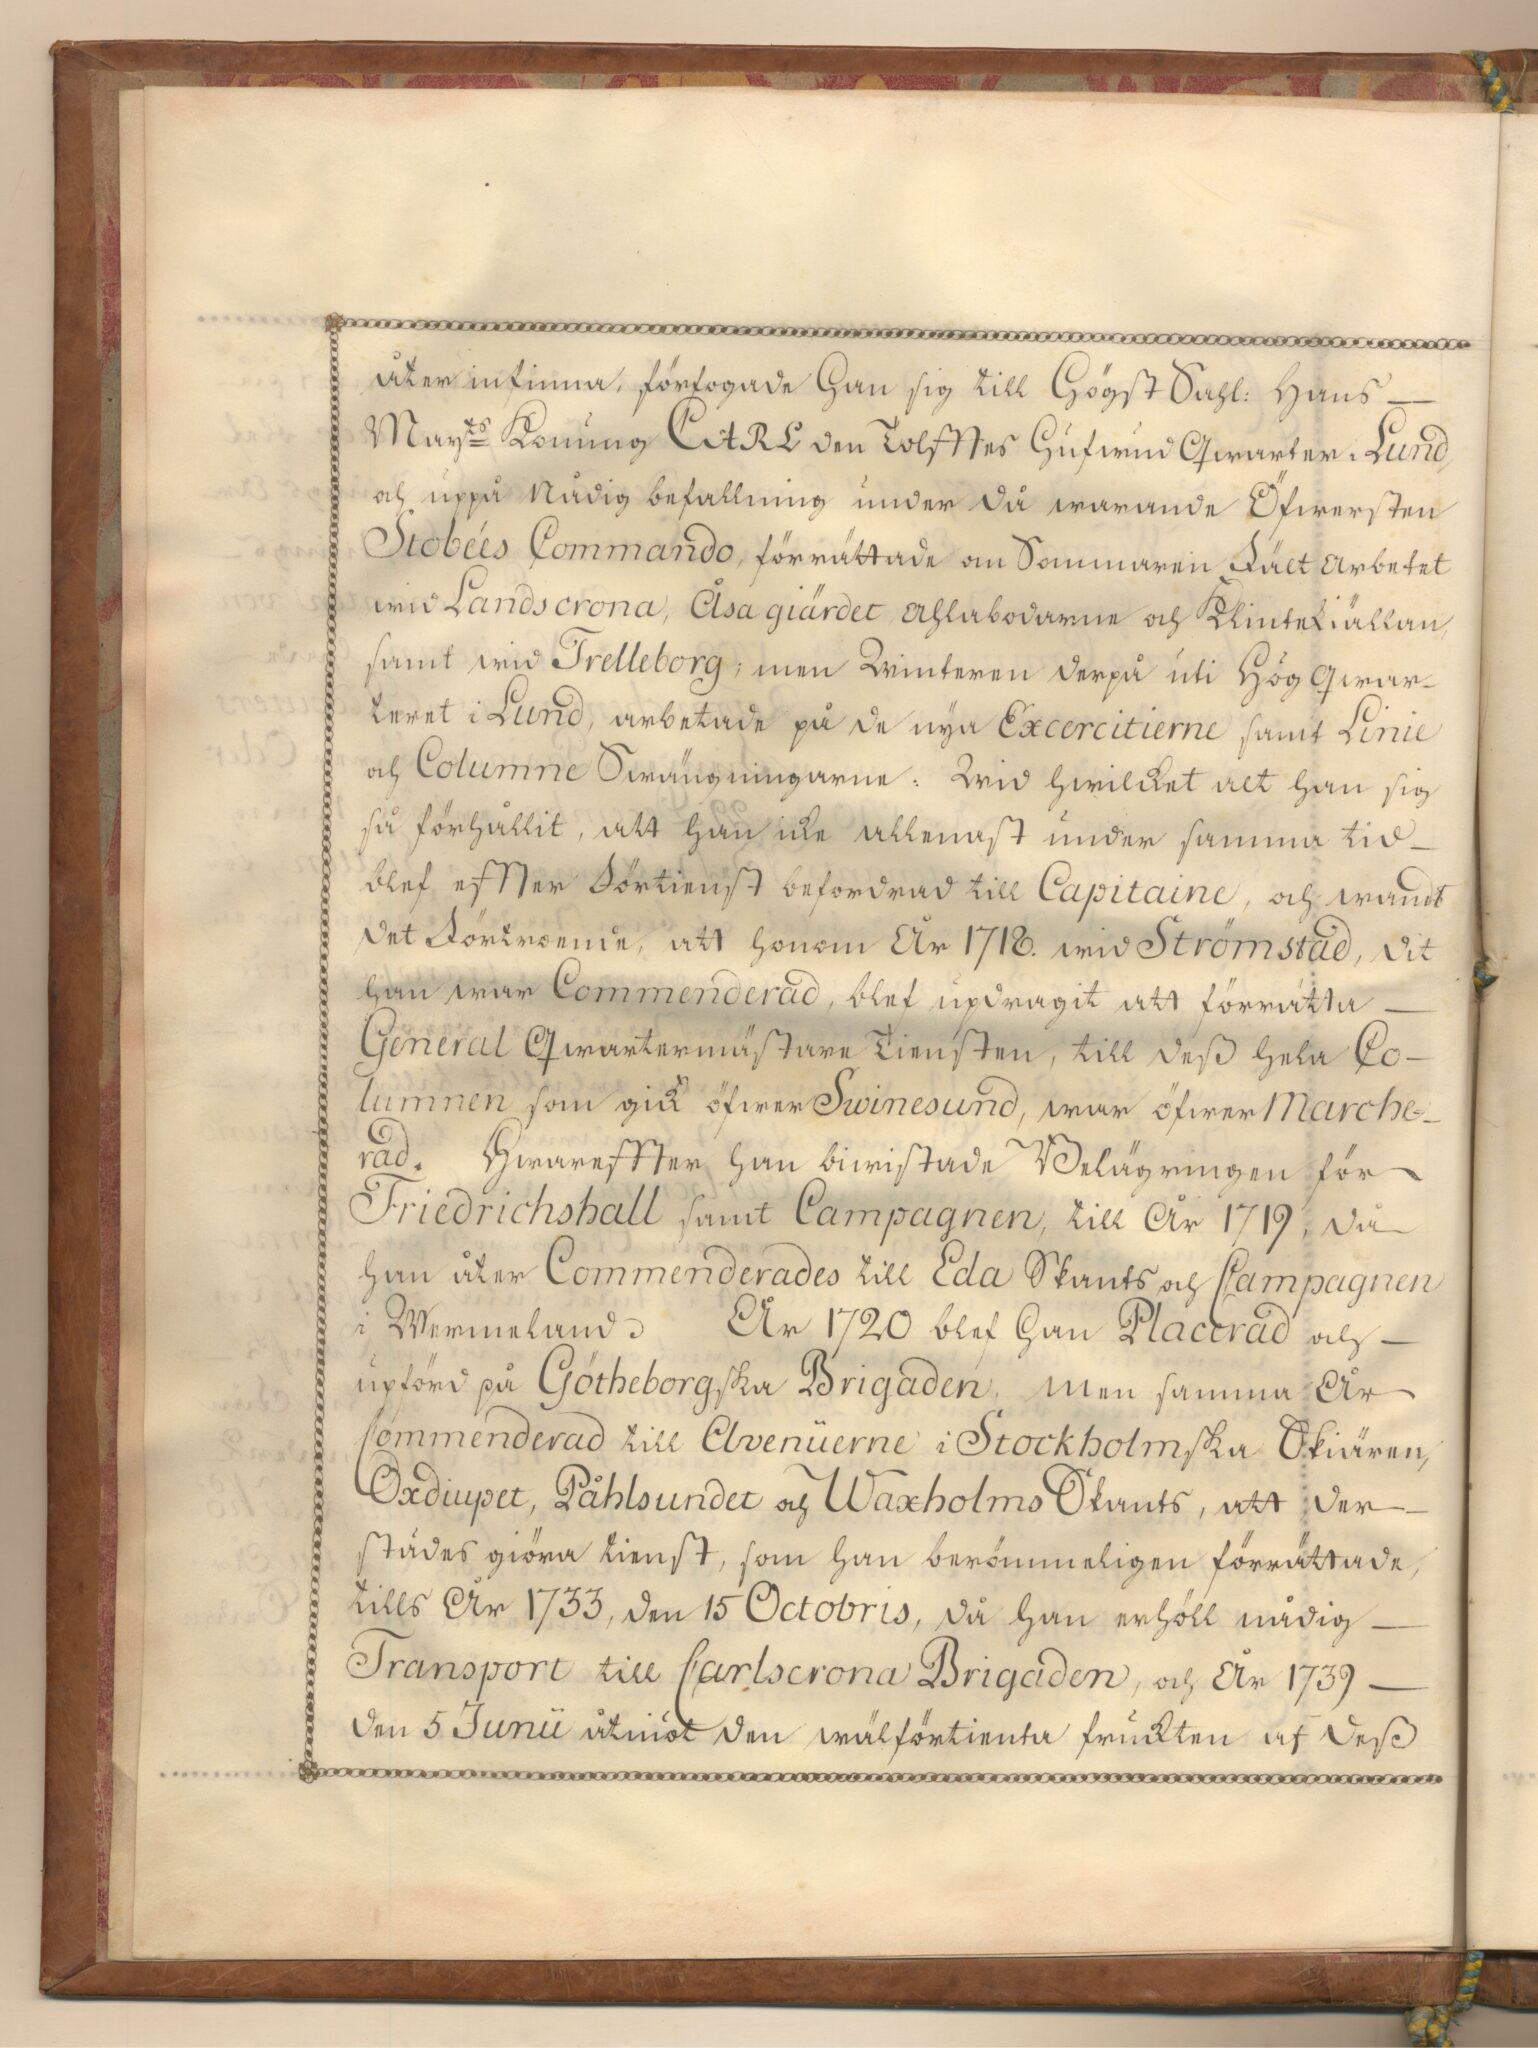 åter infinna, förfogade Han sig till Högst Sahl: Hans
May:ts Konung CARL den Tolfftes Hufwud Qwarter i Lund,
och uppå Nådig befallning under då warande Öfwersten
Stobées Commando, förrättade om Sommaren Fält Arbetet
wid Landscrona, Åsa giärdet, Ahlabodarne och Klintekiällan,
samt wid Trelleborg; men Winteren derpå uti Hög Qwar-
teret i Lund, arbetade på de nya Excercitierne samt Linie
och Columne Swängningarne: Wid hwilcket alt han sig
så förhållit, att han icke allenast under samma tid
blef effter Förtienst befordrad till Capitaine, och wandt
det Förtroende, att honom År 1718. wid Strömstad, dit
han war Commenderad, blef updragit att förrätta
General Qwartermästare Tiensten, till deß hela Co-
lumnen som gick öfwer Swinesund, war öfwer Marche-
rad. Hwareffter han biwistade Belägringen för
Friedrichshall samt Campagnen, till År 1719, då
han åter Commenderades till Eda Skants och Campagnen
i Wermeland. År 1720 blef Han Placerad och
upförd på Götheborgska Brigaden, men samma År
Commenderad till Avenüerne i Stockholmska Skiären,
Oxdiupet, Påhlsundet och Waxholms Skants, att der
städes giöra tienst, som han berömmeligen förrättade,
tills År 1733, den 15 Octobris, då han erhöll nådig
Transport till Carlscrona Brigaden, och År 1739
den 5 Junii åtniöt den wälförtienta fruckten af deß